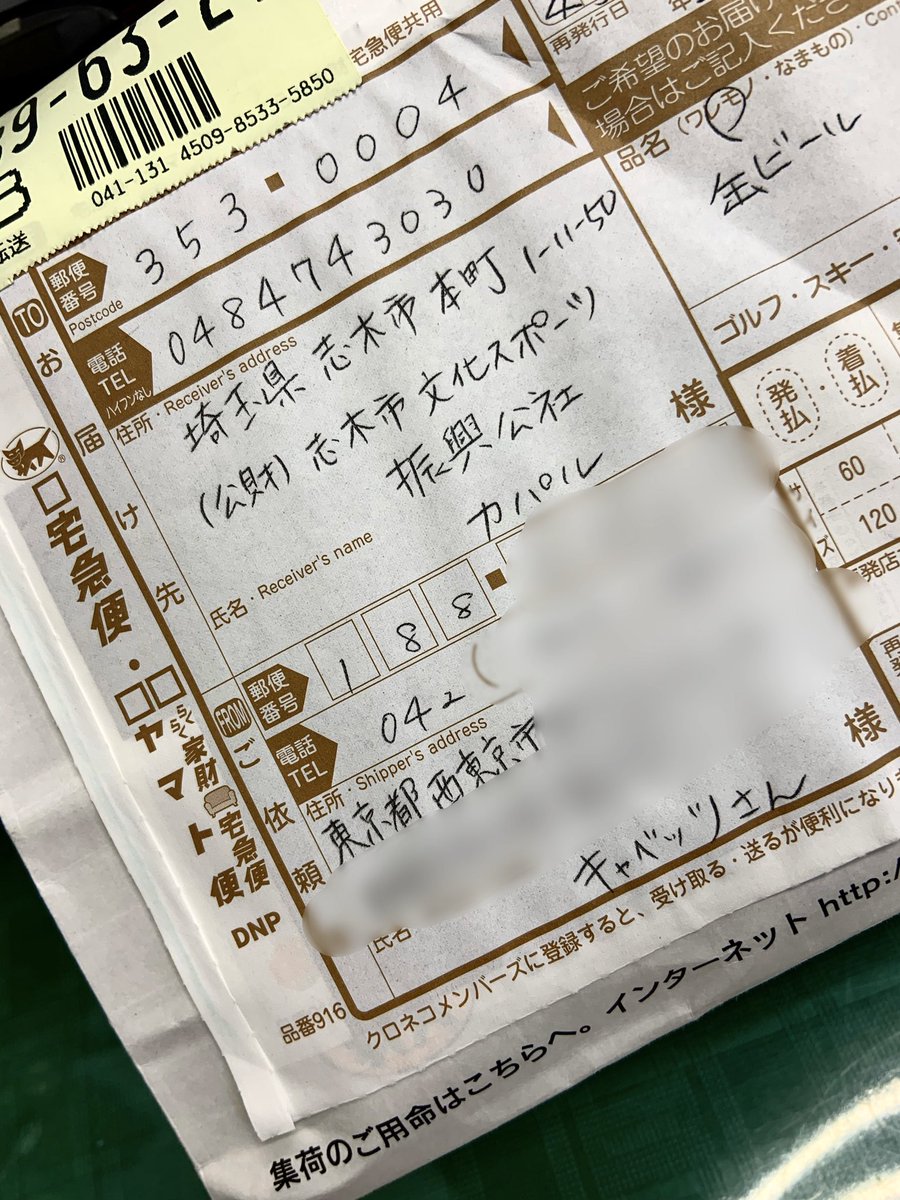 39-63-2
041-131 4509-8533-5850
宅急便共用
再発行日
ご希望のお届け
場合はご記入くださ
品名(ワレモノ・なまもの)・Cont
缶ビール
ゴルフ・スキー・
発払・着払
サイズ
60
120
転送
TO
お届け先
郵便番号
Postcode
353-0004
電話
TEL
ハイフンなし
0484743030
住所・Receiver's address
埼玉県 志木市 本町 1-11-50
(公財)志木市文化スポーツ
振興公社
様
カパル
氏名・Receiver's name
FROM
ご依頼
郵便番号
188-
電話
TEL
042
住所・Shipper's address
東京都西東京市
様
キャベッツさん
氏名
□宅急便・
□□ヤマト便
らくらく家財宅急便
DNP
品番916
クロネコメンバーズに登録すると、受け取る・送るが便利になりま
集荷のご用命はこちらへ。インターネット http:/